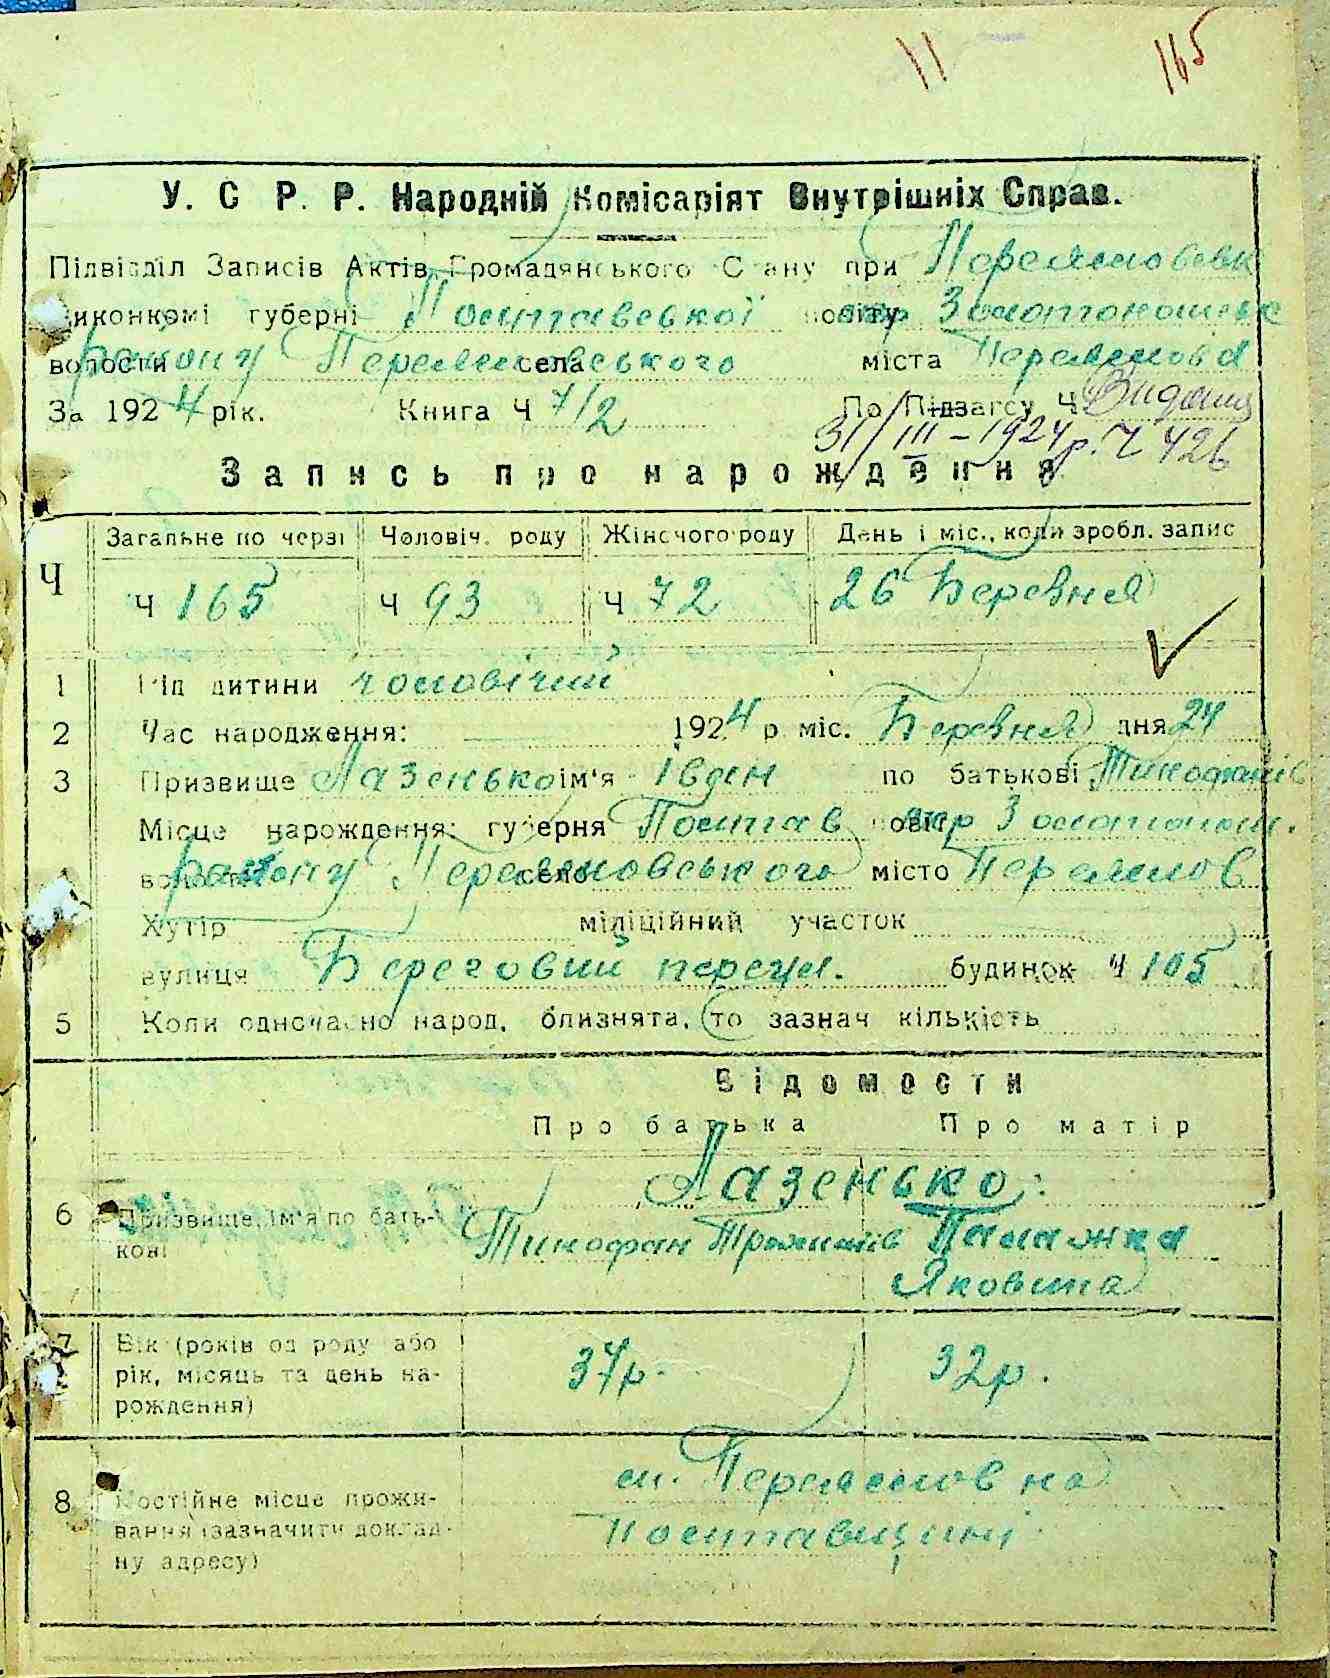 11 165
У. С Р. Р. Народній Комісаріят Внутрішніх Справ.
Підвідділ Записів Актів Громадянського Стану при Переяславськ
Виконкомі губерні Полтавської повіту окр Золотоношськ
волости району Переяславського села міста Переяслова
За 1924 рік. Книга Ч 7/2 По Підзагсу Ч
31/III-1924 р. Ч 426
Запись про народження
Ч Загальне по черзі Чоловіч. роду Жіночого роду День і міс., коли зробл. запис
Ч 165 Ч 93 Ч 72 26 Березня
1 Рід дитини чоловічий
2 Час народження: 1924 р міс. Березня дня 24
3 Призвище Лазенько ім'я Іван по батькові
Місце народження: губерня Полтав повіт окр Золотонош.
волость району Переяславського село місто Переяслов
Хутір міліційний участок
вулиця Береговий переул. будинок Ч 105
5 Коли одночасно народ. близнята, то зазнач кількість
Відомости
Про батька Про матір
Лазенько
6 Призвище, ім'я по бать- Палажка
кові Яковина
7 Вік (років од роду або
рік, місяць та день на- 37р. 32р.
рождення)
м. Переяслов на
8 Постійне місце прожи-
вання (зазначити доклад- Полтавщині
ну адресу)